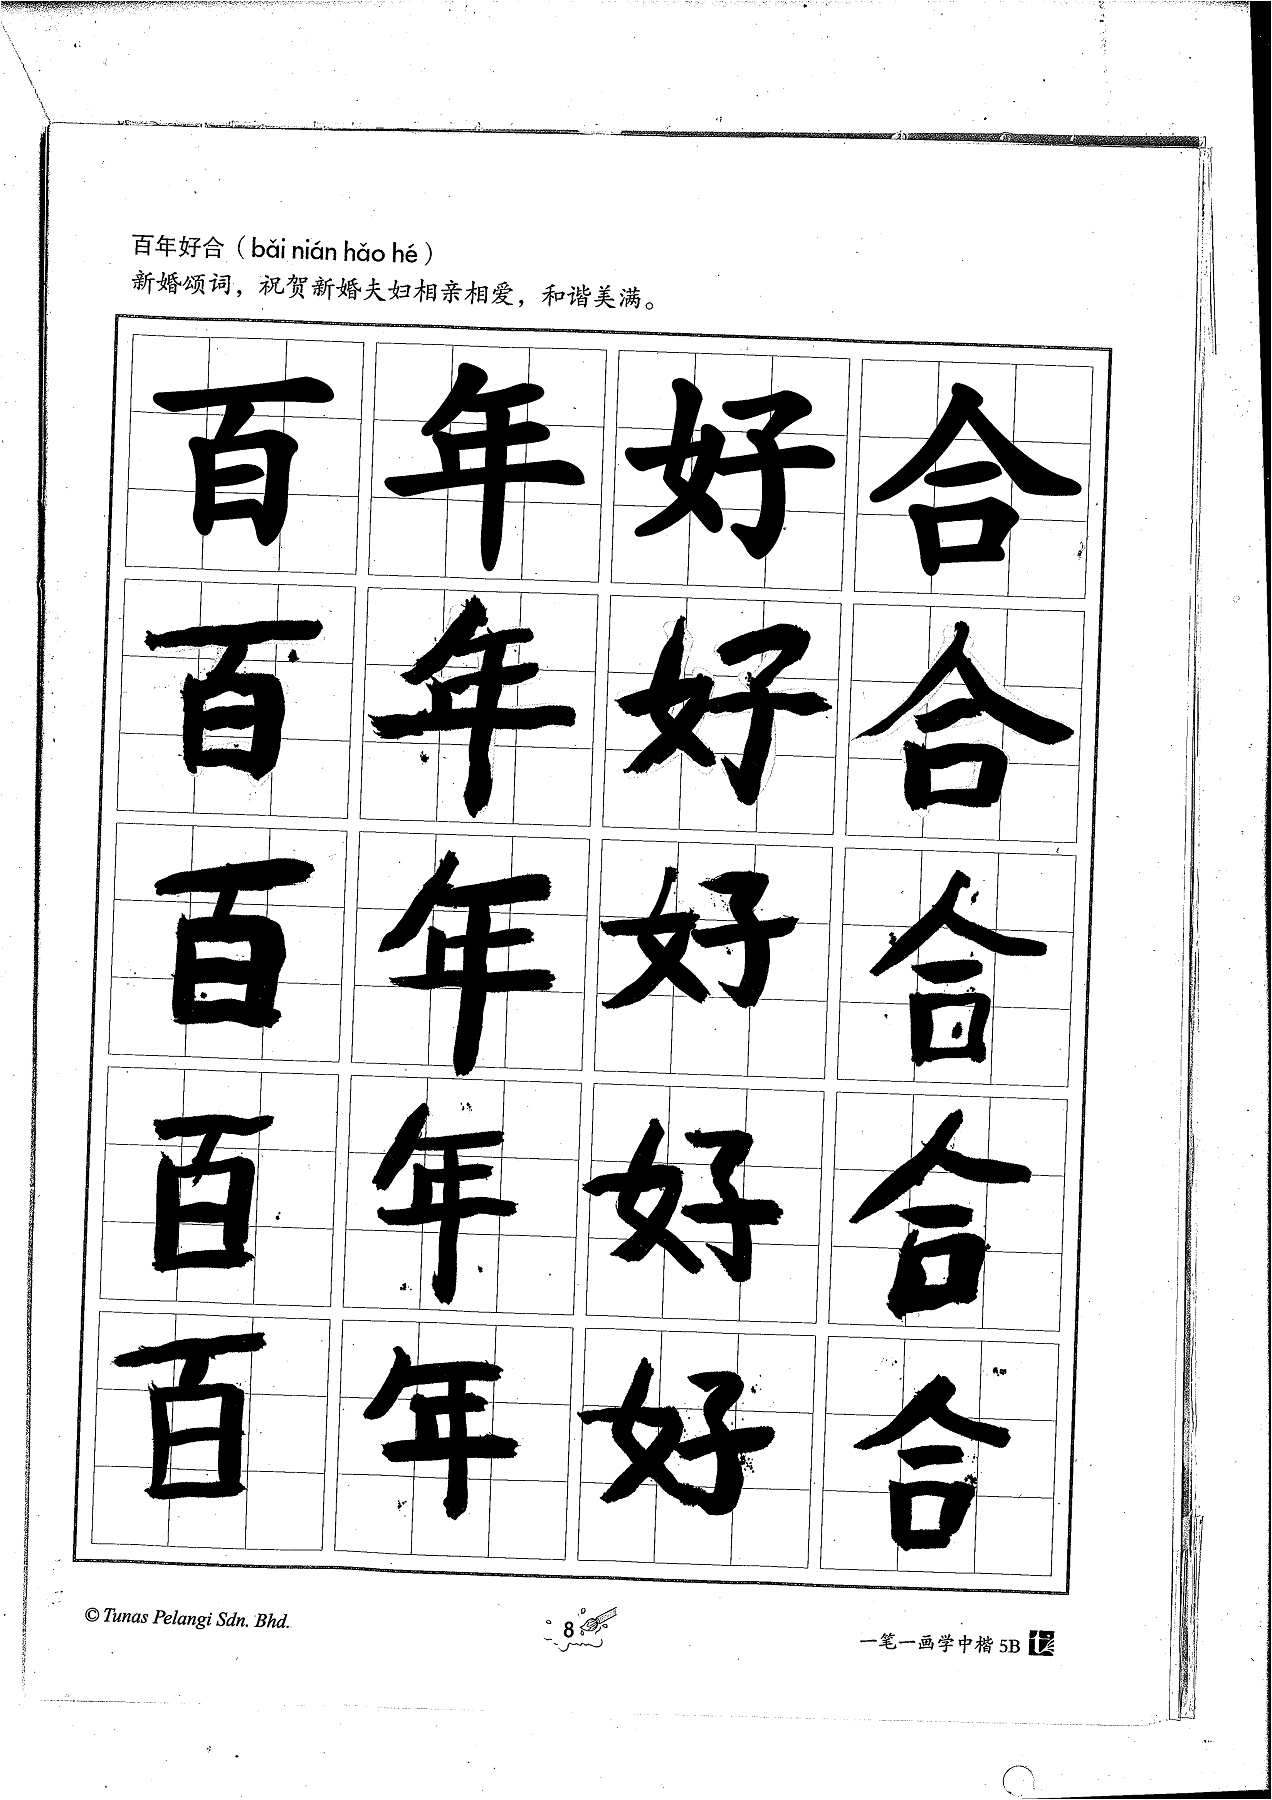 百年好合（bǎi nián hǎo hé）
新婚颂词，祝贺新婚夫妇相亲相爱，和谐美满。
百年好合
百年好合
百年好合
百年好合
百年好合
© Tunas Pelangi Sdn. Bhd.
8
一笔一画学中楷 5B